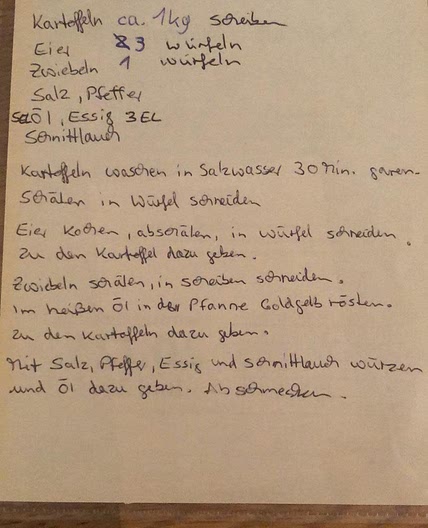 Kartoffeln ca. 1kg scheiben
Eier 3 würfeln
Zwiebeln 1 würfeln
Salz, Pfeffer
Öl, Essig 3 EL
Schnittlauch
Kartoffeln waschen in Salzwasser 30 min. garen.
Schälen in Würfel schneiden
Eier Kochen, abschälen, in würfel schneiden.
Zu den Kartoffel dazu geben.
Zwiebeln schälen, in scheiben schneiden.
Im heißen Öl in der Pfanne Goldgelb rösten.
Zu den Kartoffeln dazu geben.
Mit Salz, Pfeffer, Essig und Schnittlauch würzen
und Öl dazu geben. Abschmecken.